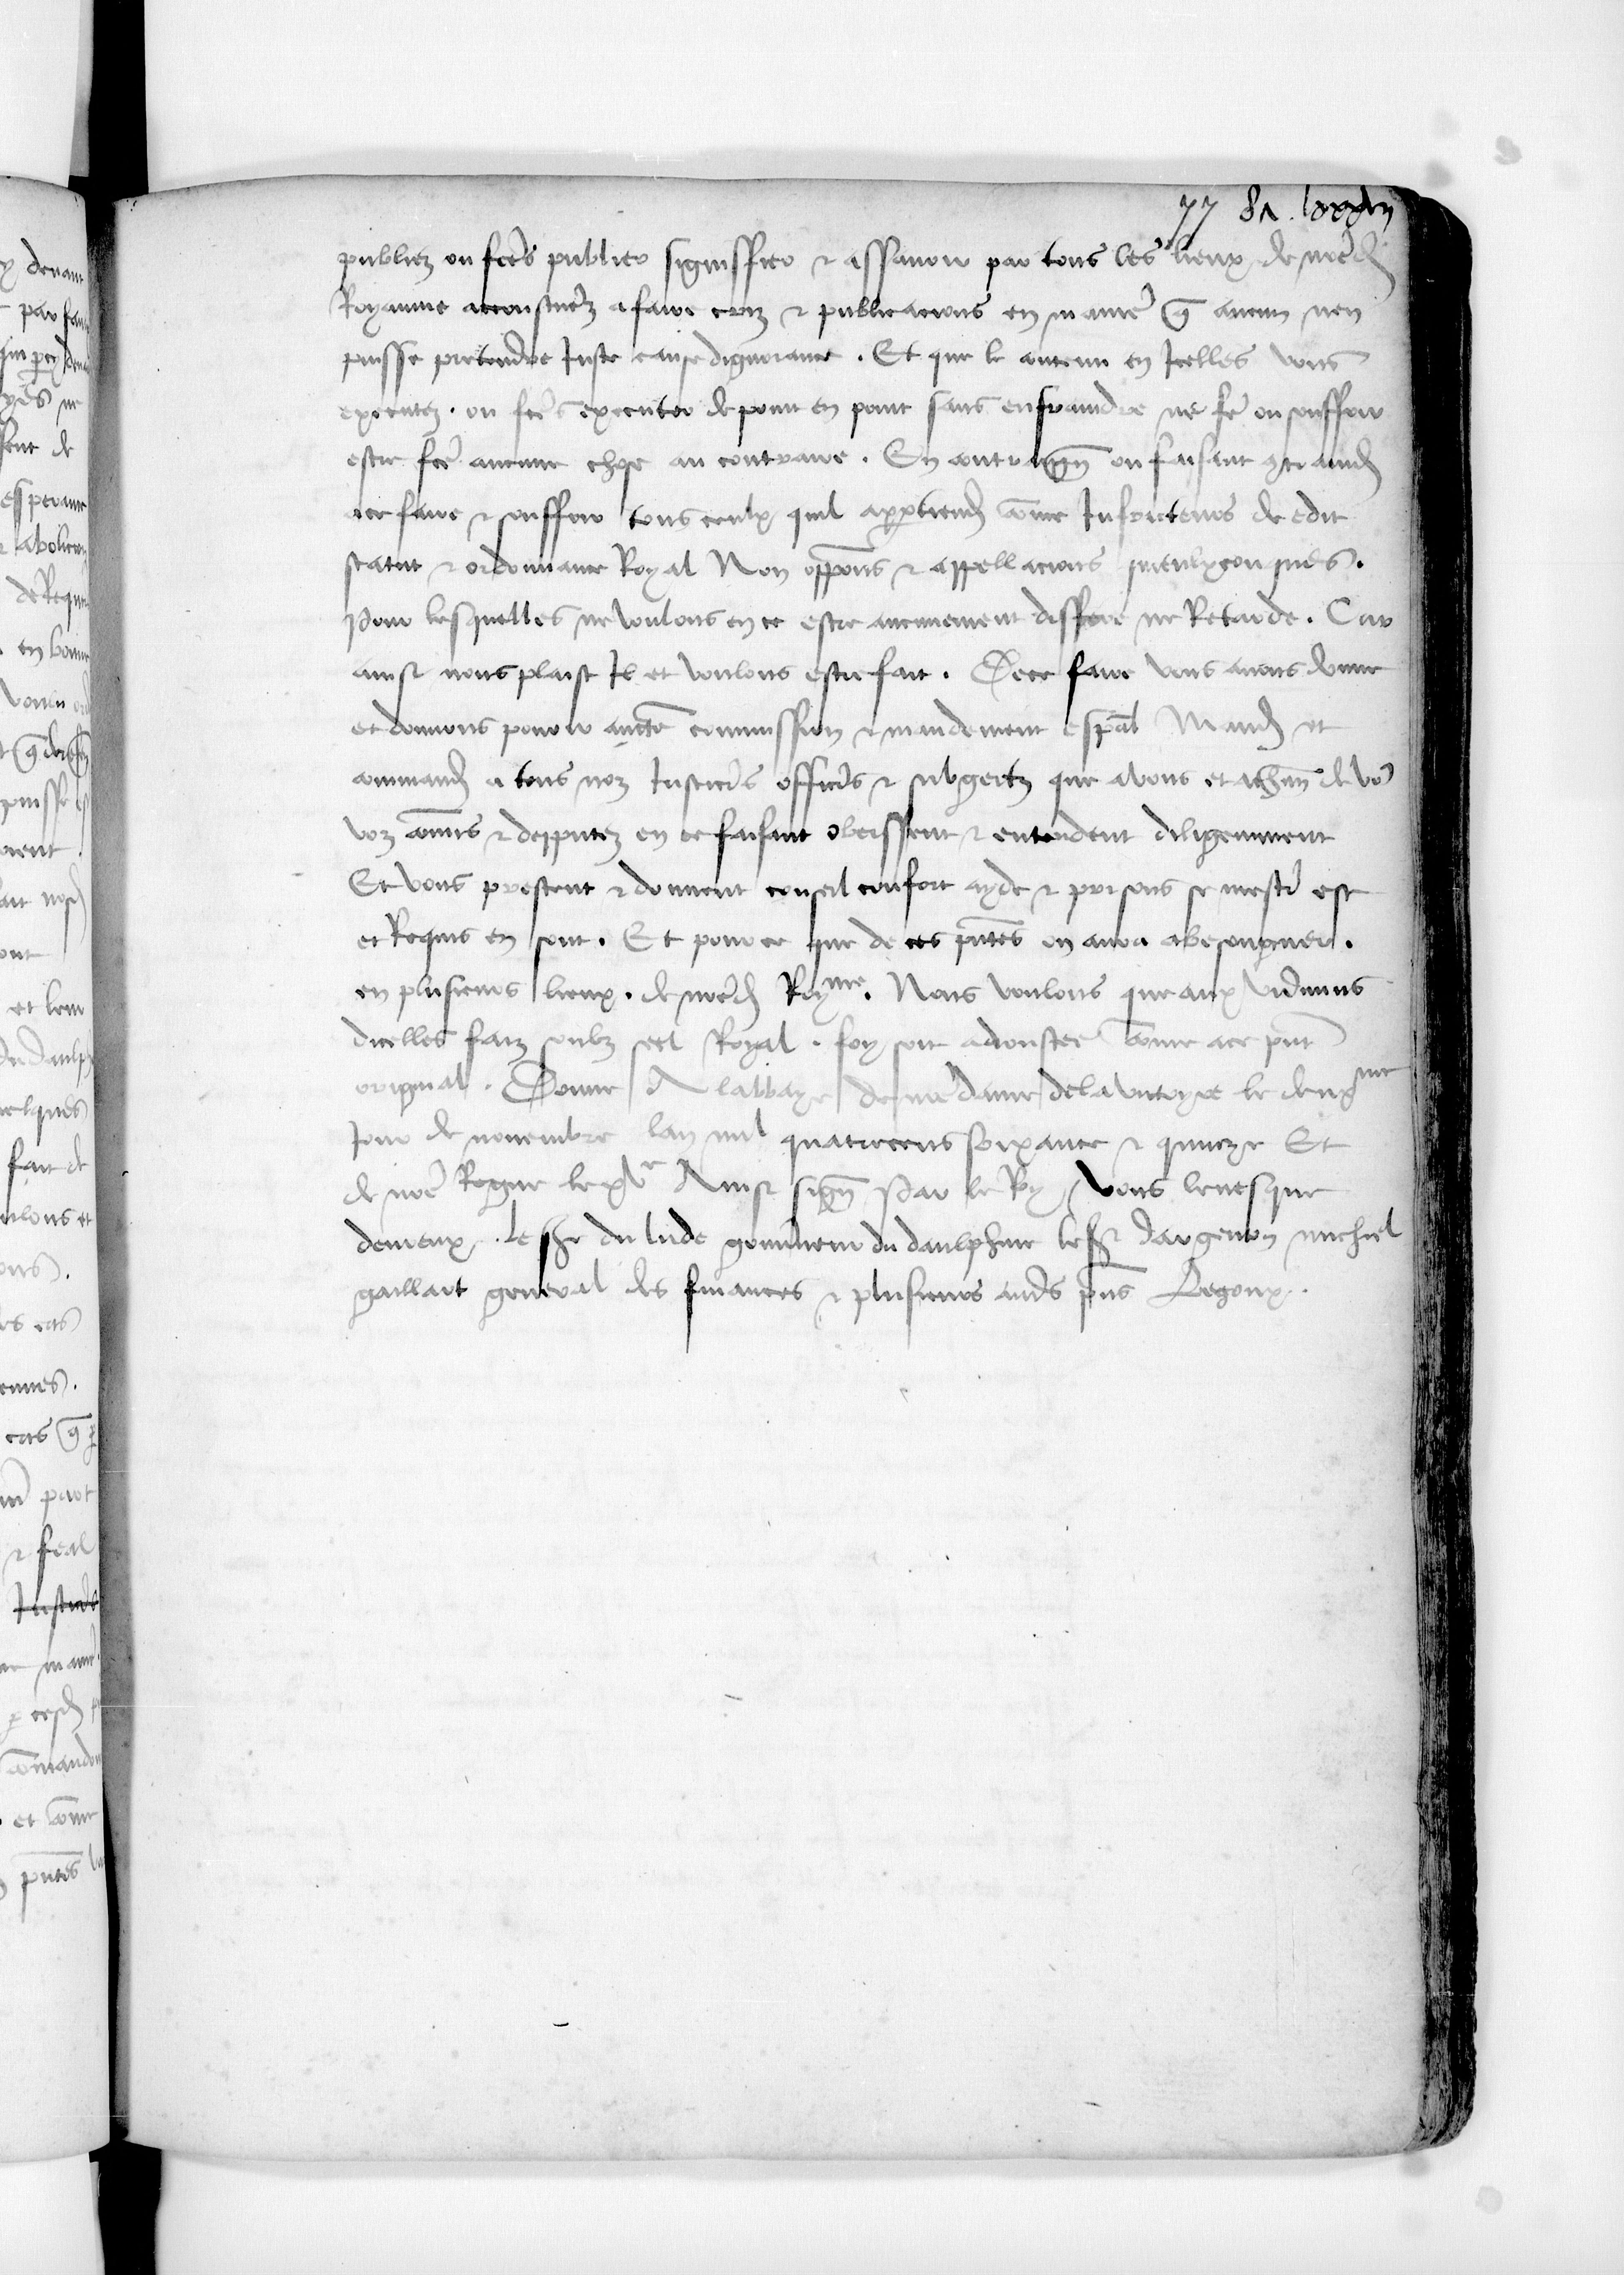 77 81. lxxxiiij
publiez ou fce͂s publier signiffier & assavoir par tous les lieux de nrẽd
Royaume acoustumez a faire criz & publicacions en manie͂ q̃ aucun nen
puisse pretendre Juste cause dignorance. Et que le contenu en Jcelles vous
executez. ou fce͂s executer de point en point sans enfraindre ne fe͂ ou souffrir
estre fce͂ aucune chose au contraire. En contraign̄ ou faisant 9traind
ace faire & souffrir tous ceulx quil appartiend cõme Infracteurs de edit
statut & ordonnance Royal Non opp̃ons & appellacions quelxconques.
Pour lesquelles ne voulons en ce estre aucunement differe ne Retarde. Car
ainsi nous plaist Jl et voulons estre fait. De ce faire vous avons donne
et donnons povoir auct̃e commission & mandement esp̃al Mand et
command a tous noz Justice͂s office͂s & subgectz que a vous et a chũn de vo͂
voz cõmis & depputez en ce faisant obeissent & entendent diligemment
Et vous prestent & donnent conseil confort ayde & prisons se mestie͂ est
et Requis en sont. Et pour ce que de ces p̃ntes on aura a besongner.
en plusieurs lieux. de nrẽd Roy̅me. Nous voulons que aux vidimus
dicelles faiz soubz seel Royal. foy soit adioustee cõme a ce p̃nt
original. Donne A labbaye de nr̃e dame de la victoyre le deuxme
Jour de novembre lan mil quatrecens soixante & quinze Et
de nr̃e Regne le xve Ainsi sign̄ Par le Roy Vous levesque
devreux. le sire du lude gouverneur du daulphine le sr dargenton michiel
gaillart general des finances & plusieurs aut͂s p̃ns Legoux.